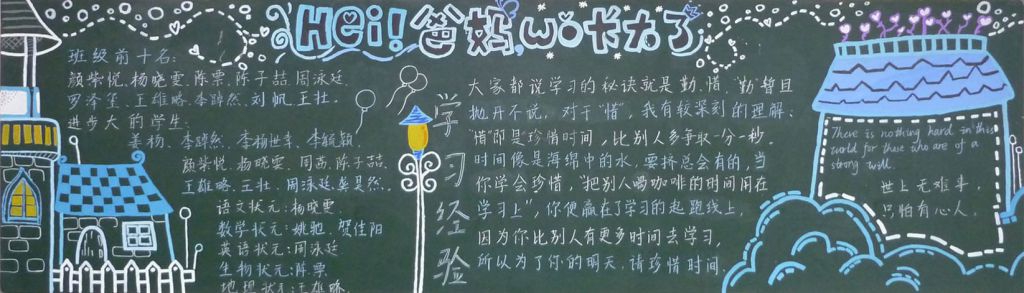 Hei! 爸妈,wo长大了
班级前十名:
颜紫悦.杨晓雯.陈票.陈子喆.周泳廷.
罗泽 王雄略.李 然.刘帆.王杜.
进步大的学生:
姜杨、李 然、李杨世丰、李毓颖
颜紫悦.杨晓雯 周茜.陈子喆.
王雄略.王杜.周泳廷 昊然.
语文状元:杨晓雯
数学状元:姚 .贺佳阳
英语状元:周泳廷
生物状元:陈票
地理状元:王雄略.
学习经验
大家都说学习的秘诀就是勤.惜.“勤”暂且
抛开不说,对于“惜”,我有较深刻的理解、
“惜”即是珍惜时间,比别人多争取一分一秒.
时间像是海绵中的水,要挤总会有的,当
你学会珍惜,“把别人喝咖啡的时间用在
学习上”,你便赢在了学习的起跑线上,
因为你比别人有更多时间去学习,
所以为了你的明天,请珍惜时间.
There is nothing hard in this
world for those who are of a
strong will.
世上无难事,
只怕有心人。